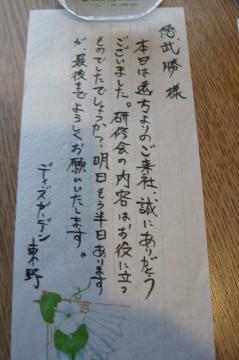 徳武勝様
本日は遠方よりのご来社、誠にありがとう
ございました。研修会の内容はお役に立つ
ものでしたでしょうか？明日もう半日あります
が、最後までよろしくお願いいたします。
ディーズガーデン
東野